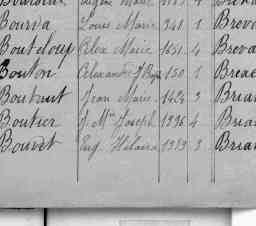 Bourva Louis Marie 348 1 Brevo
Bouteloup Alex Marie 1651 4 Breva
Bouton Alexandre J Bap 150 1 Breae
Boutrut Jean Marie 1424 3 Briar
Boutier J. Mie Joseph 1396 4 Briar
Bouvet Eug. Hilaire 1313 3 Brian